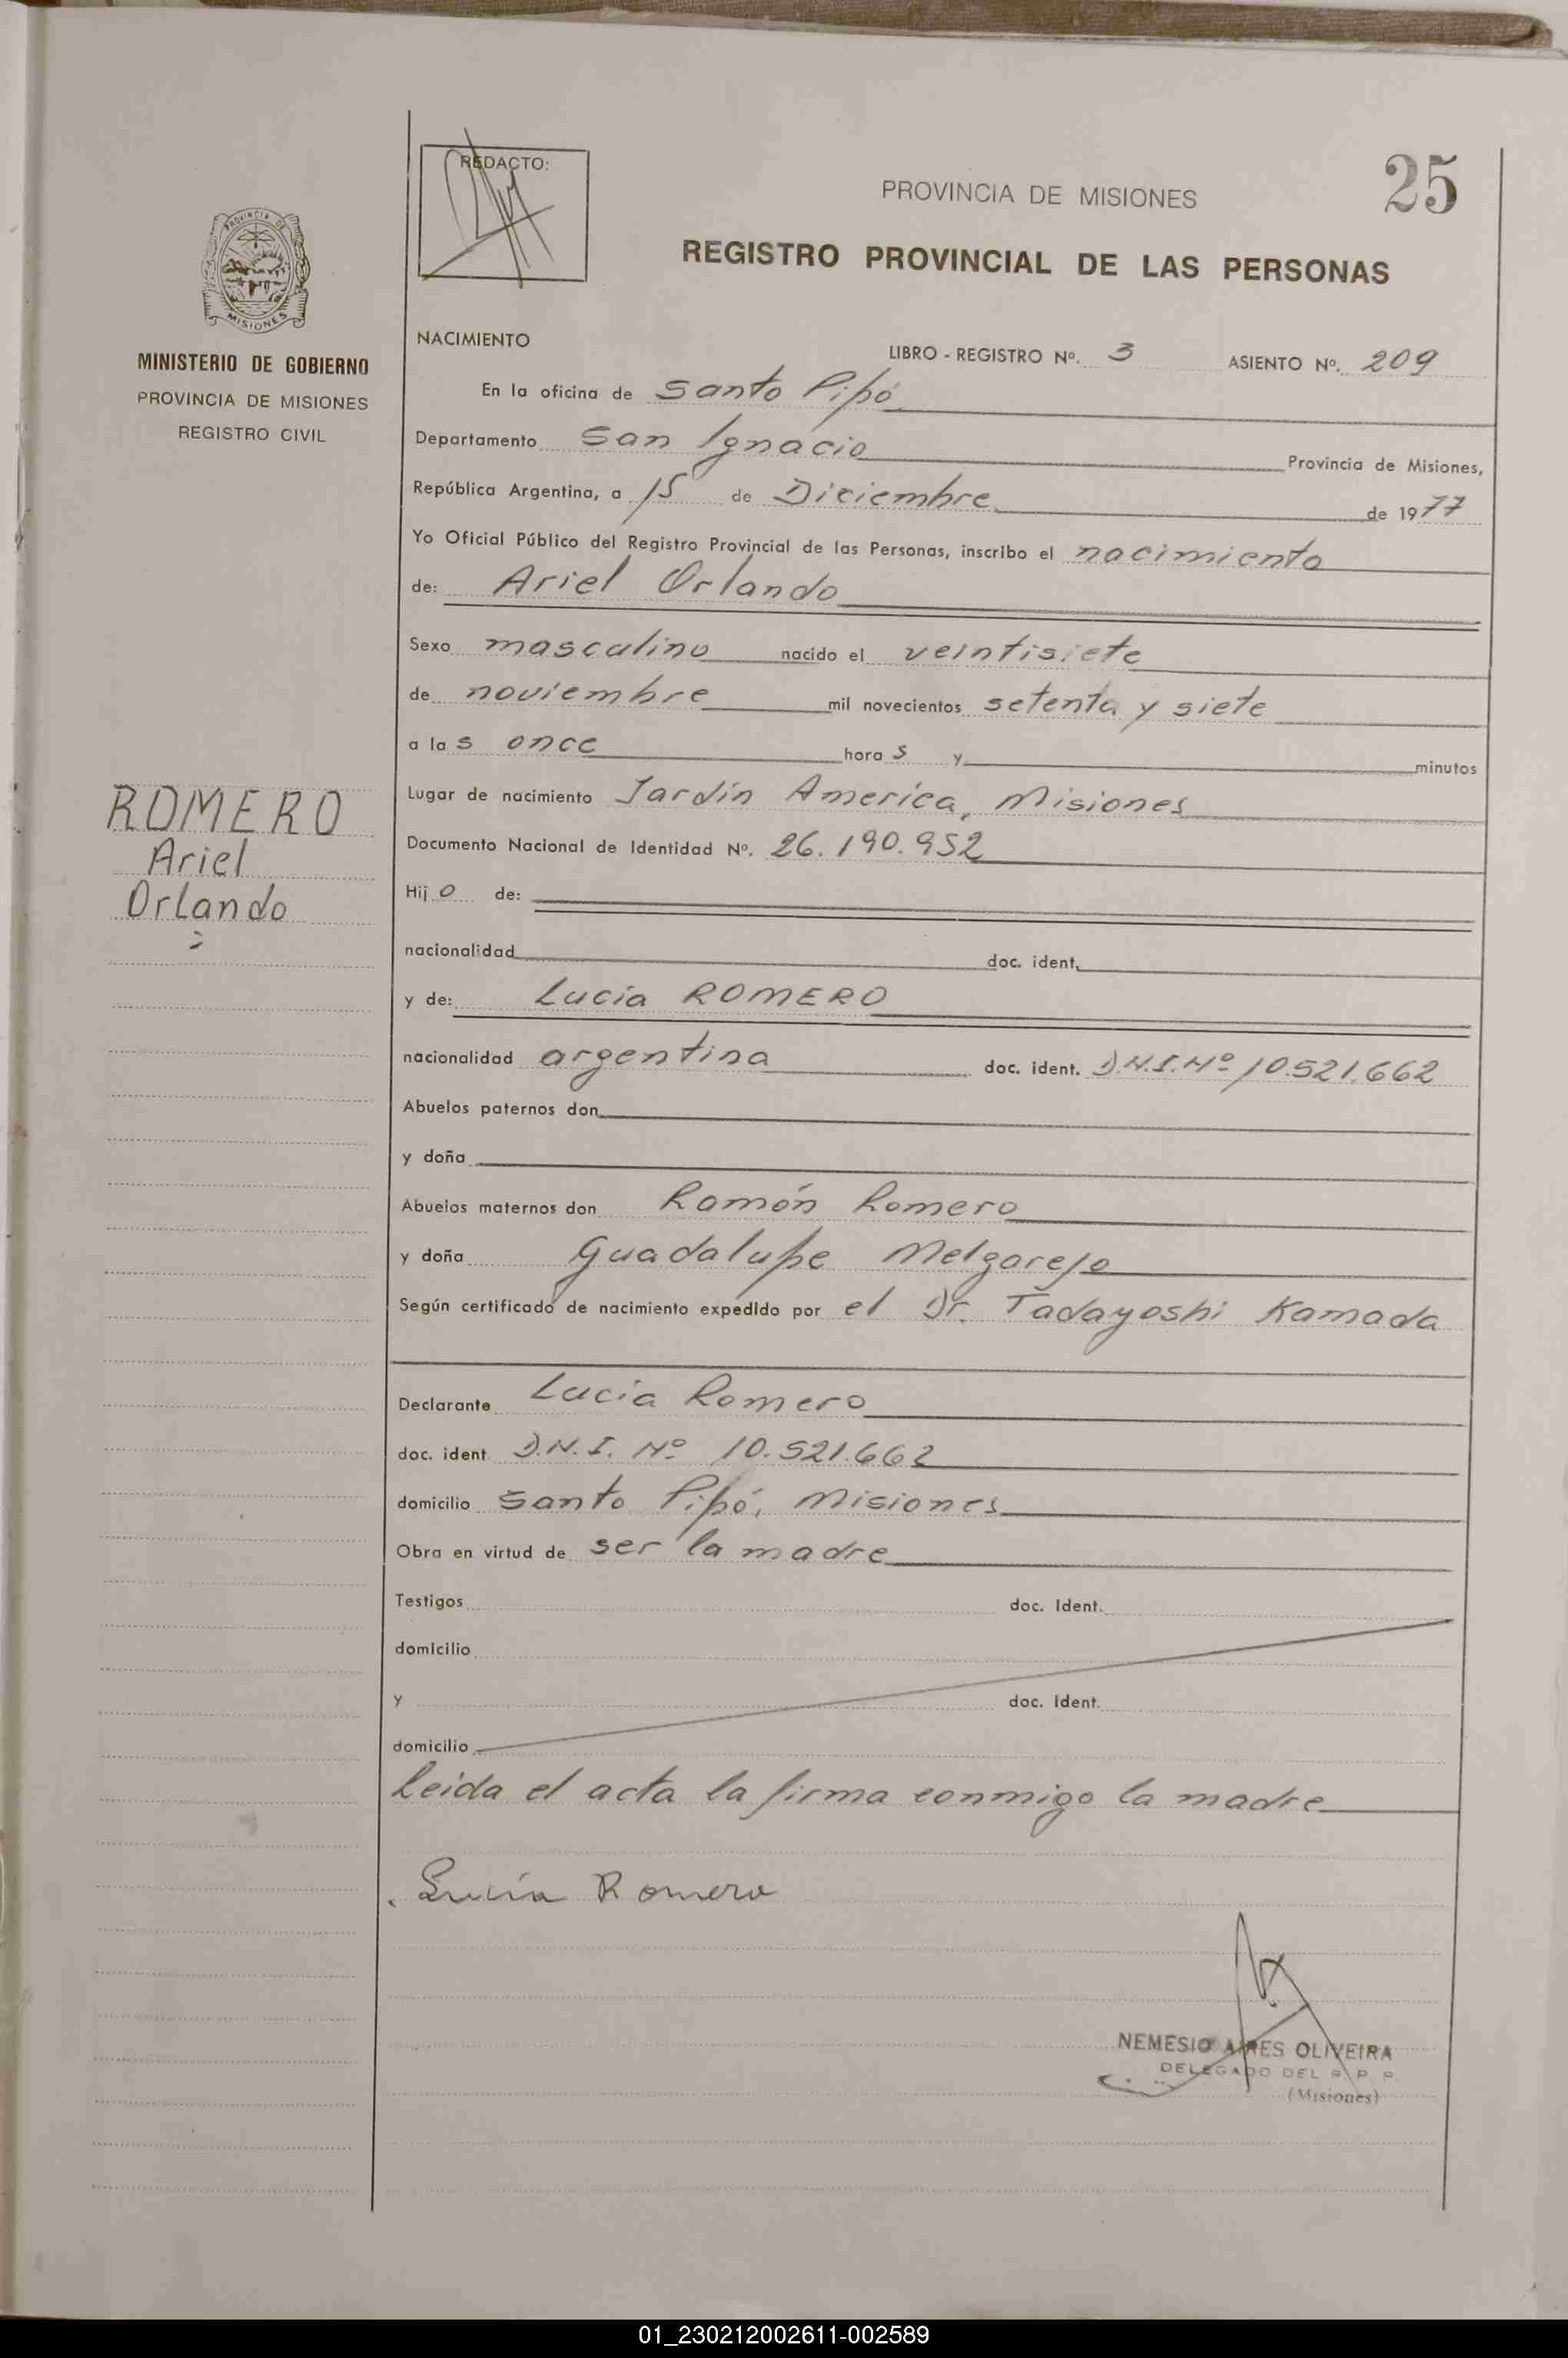 25
REDACTO:
PROVINCIA DE MISIONES
REGISTRO PROVINCIAL DE LAS PERSONAS
PROVINCIA DE
MISIONES
MINISTERIO DE GOBIERNO
PROVINCIA DE MISIONES
REGISTRO CIVIL
ROMERO
Ariel
Orlando
NACIMIENTO
LIBRO - REGISTRO Nº. 3 ASIENTO Nº. 209
En la oficina de Santo Pipó
Departamento San Ignacio Provincia de Misiones,
República Argentina, a 15 de Diciembre de 1977
Yo Oficial Público del Registro Provincial de las Personas, inscribo el nacimiento
de: Ariel Orlando
Sexo masculino nacido el veintisiete
de noviembre mil novecientos setenta y siete
a las once horas y minutos
Lugar de nacimiento Jardín America, Misiones
Documento Nacional de Identidad Nº. 26.190.952
Hijo de:
nacionalidad doc. ident.
y de: Lucía ROMERO
nacionalidad argentina doc. ident. D.N.I.Nº 10.521.662
Abuelos paternos don
y doña
Abuelos maternos don Ramón Romero
y doña Guadalupe Melgarejo
Según certificado de nacimiento expedido por el Dr. Tadayoshi Kamada
Declarante Lucía Romero
doc. ident D.N.I. Nº 10.521.662
domicilio Santo Pipó, Misiones
Obra en virtud de ser la madre
Testigos doc. Ident.
domicilio
y doc. Ident.
domicilio
Leida el acta la firma conmigo la madre
Lucía Romero
NEMESIO AIRES OLIVEIRA
DELEGADO DEL R. P. P.
(Misiones)
01_230212002611-002589